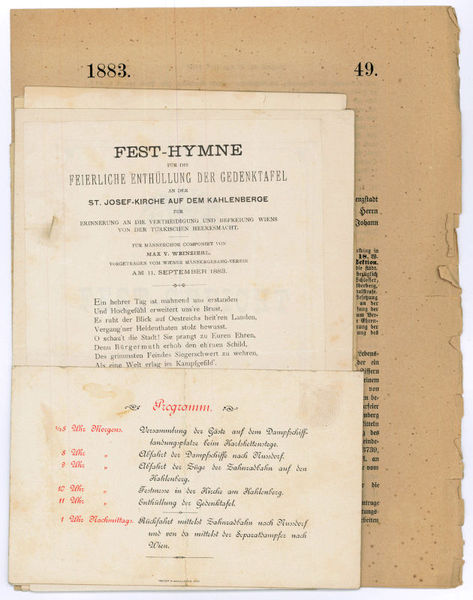 1883.
49.
FEST-HYMNE
FÜR DIE
FEIERLICHE ENTHÜLLUNG DER GEDENKTAFEL
AN DER
ST. JOSEF-KIRCHE AUF DEM KAHLENBERGE
ZUR
ERINNERUNG AN DIE VERTHEIDIGUNG UND BEFREIUNG WIENS
VON DER TÜRKISCHEN HEERESMACHT.
FÜR MÄNNERCHOR COMPONIRT VON
MAX V. WEINZIERL,
VORGETRAGEN VOM WIENER MÄNNERGESANG-VEREIN
AM 11. SEPTEMBER 1883.
Ein hehrer Tag ist mahnend uns erstanden
Und Hochgefühl erweitert uns're Brust,
Es ruht der Blick auf Oestreichs heit'ren Landen,
Vergang'ner Heldenthaten stolz bewusst.
O schau't die Stadt! Sie prangt zu Euren Ehren,
Denn Bürgermuth erhob den eh'rnen Schild,
Des grimmsten Feindes Siegerschwert zu wehren,
Als eine Welt erlag im Kampfgefild'.
Programm.
½8 Uhr Morgens. Versammlung der Gäste auf dem Dampfschiff-
landungsplatze beim Karlskettenstege.
8 Uhr „ Abfahrt der Dampfschiffe nach Nussdorf.
9 Uhr „ Abfahrt der Züge der Zahnradbahn auf den
Kahlenberg.
10 Uhr „ Festmesse in der Kirche am Kahlenberg.
11 Uhr „ Enthüllung der Gedenktafel.
1 Uhr Nachmittags. Rückfahrt mittelst Zahnradbahn nach Nussdorf
und von da mittelst der Separatdampfer nach
Wien.
Herrn
Johann
18.
Sektion.